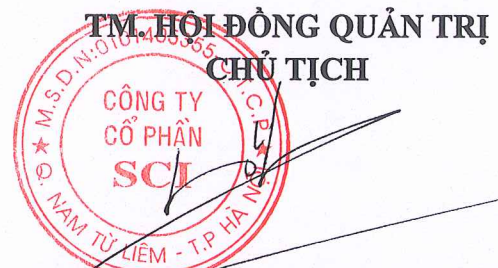 TM. HỘI ĐỒNG QUẢN TRỊ
CHỦ TỊCH
M.S.D.N:0101405355 - C.T.C.P
CÔNG TY
CỔ PHẦN
SCI
Q. NAM TỪ LIÊM - T.P HÀ NỘI